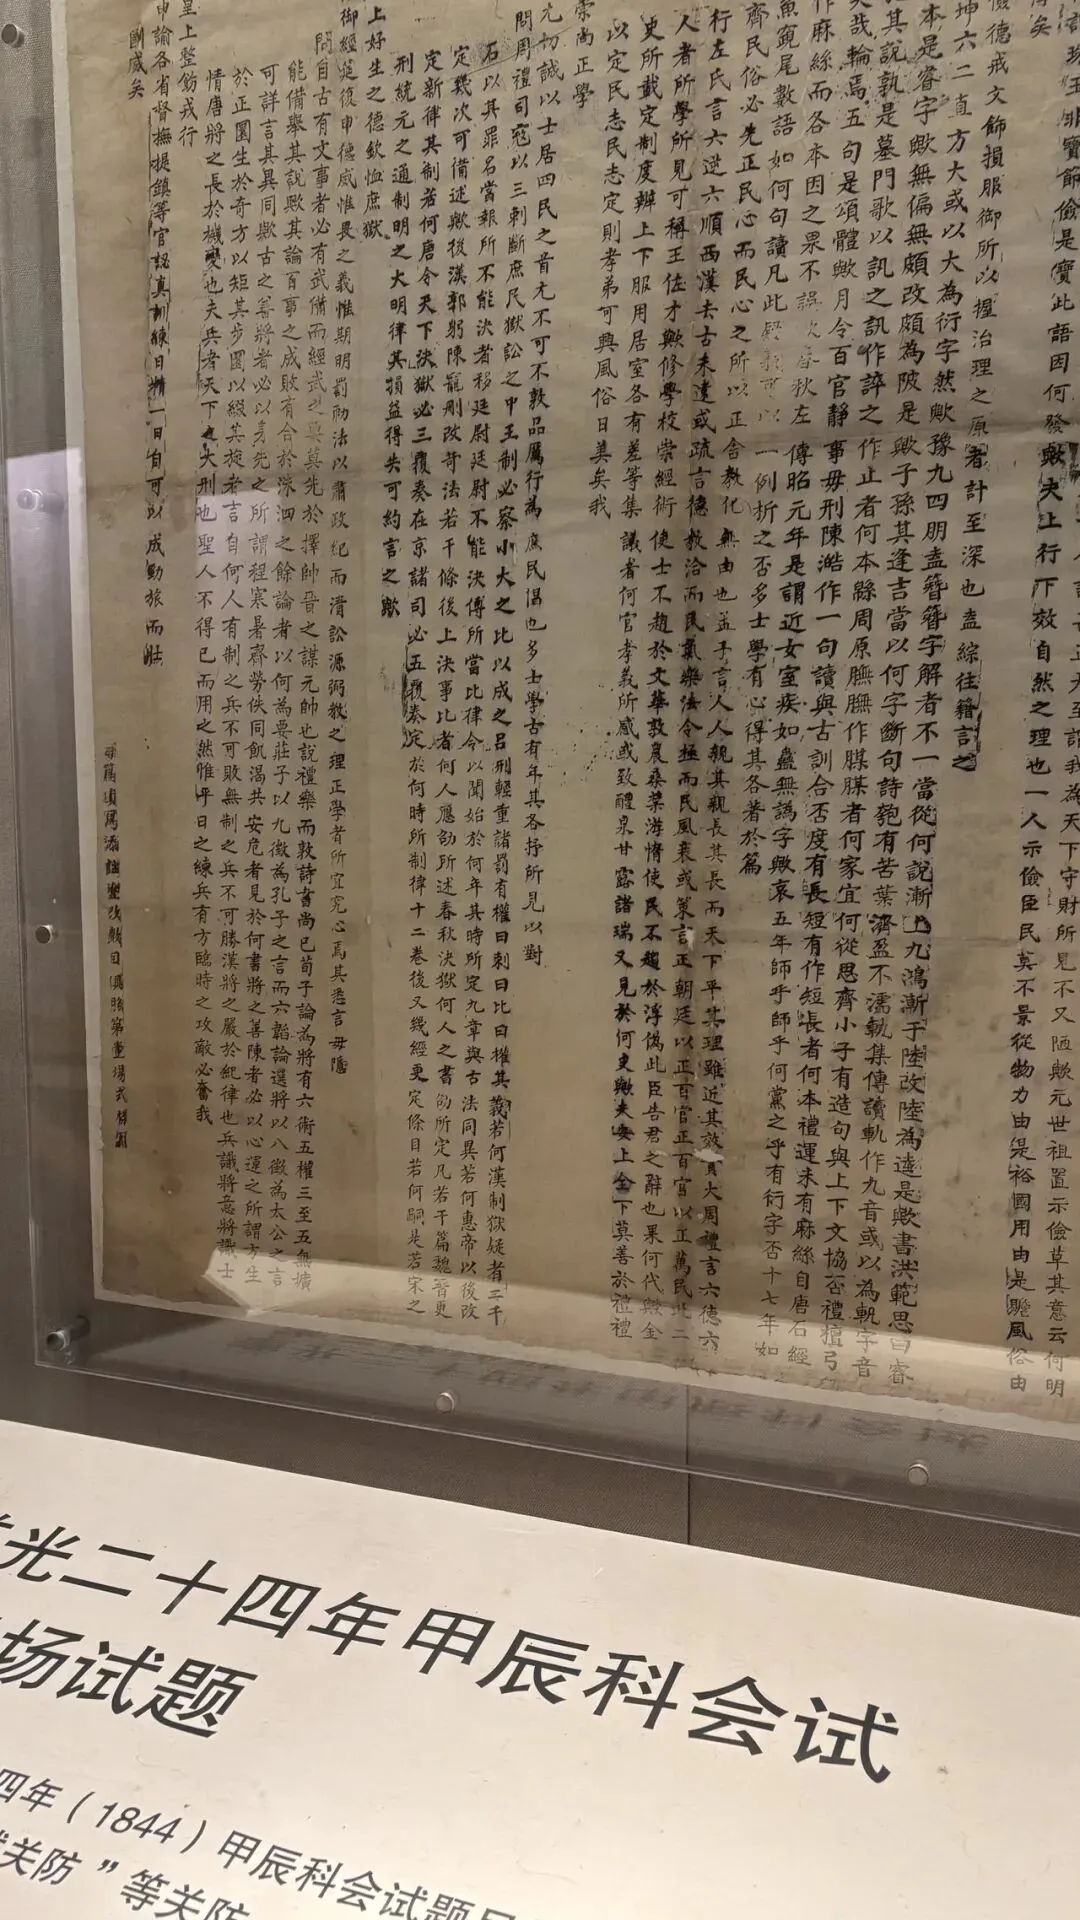 儉德戒文飾損服御所以握治理之原者計至深也盍綜往籍言之
坤六二直方大或以大為衍字然歟豫九四朋盍簪簪字解者不一當從何說漸上九鴻漸于陸改陸為逵是歟書洪範思曰睿
本是睿字歟無偏無頗改頗為陂是歟子孫其逢吉當以何字斷句詩匏有苦葉濟盈不濡軌集傳讀軌作九音或以為軓字音
其說孰是墓門歌以訊之訊作誶之作止者何本緜周原膴膴作腜腜者何家宜何從思齊小子有造句與上下文協否禮檀弓
美哉輪焉五句是頌體歟月令百官靜事毋刑陳澔作一句讀與古訓合否度有長短有作短長者何本禮運未有麻絲自唐石經
作麻絲而各本因之果不誤歟春秋左傳昭元年是謂近女室疾如蠱無譌字歟哀五年師乎師乎何黨之乎有衍字否十七年如
魚竀尾數語如何句讀凡此疑義可以一例析之否多士學有心得其各著於篇
齊民俗必先正民心而民心之所以正舍教化無由也孟子言人人親其親長其長而天下平其理雖近其效實大周禮言六德六
行左氏言六逆六順西漢去古未遠或疏言德教洽而民氣樂法令極而民風哀或策言正朝廷以正百官正百官以正萬民此二
人者所學所見可稱王佐才歟修學校崇經術使士不趨於文華敦農桑業游惰使民不趨於浮偽此臣告君之辭也果何代歟金
史所載定制度辨上下服用居室各有差等集議者何官孝義所感或致醴泉甘露諸瑞又見於何史歟夫安上全下莫善於禮禮
以定民志民志定則孝弟可興風俗日美矣我
崇尚正學
尤切誠以士居四民之首尤不可不敦品厲行為庶民倡也多士學古有年其各抒所見以對
問周禮司寇以三刺斷庶民獄訟之中王制必察小大之比以成之呂刑輕重諸罰有權曰刺曰比曰權其義若何漢制獄疑者二千
石以其罪名當報所不能決者移廷尉廷尉不能決傅所當比律令以聞始於何年其時所定九章與古法同異若何惠帝以後改
定幾次可備述歟後漢郭躬陳寵刪改苛法若干條後上決事比者何人應劭所述春秋決獄何人之書劭所定凡若干篇魏晉更
定新律其制若何唐令天下決獄必三覆奏在京諸司必五覆奏定於何時所制律十二卷後又幾經更定條目若何嗣是若宋之
刑統元之通制明之大明律其損益得失可約言之歟
上好生之德欽恤庶獄
御經筵復申德威惟畏之義惟期明罰勑法以肅政紀而清訟源弼教之理正學者所宜究心焉其悉言毋隱
問自古有文事者必有武備而經武之要莫先於擇帥晉之謀元帥也說禮樂而敦詩書尚已荀子論為將有六術五權三至五無壙
能備舉其說歟其論百事之成敗有合於洙泗之餘論者以何為要莊子以九徵為孔子之言而六韜論選將以八徵為太公之言
可詳言其異同歟古之善將者必以身先之所謂程寒暑齊勞佚同飢渴共安危者見於何書將之善陳者必以心運之所謂方生
於正圜生於奇方以矩其步圜以綴其旋者言自何人有制之兵不可敗無制之兵不可勝漢將之嚴於紀律也兵識將意將識士
情唐將之長於機變也夫兵者天下之大刑也聖人不得已而用之然惟平日之練兵有方臨時之攻敵必奮我
皇上整飭戎行
申諭各省督撫提鎮等官認真訓練日精一日自可以成勁旅而壯
國威矣
光二十四年甲辰科会试
场试题
四年（1844）甲辰科会试题
关防”等关防